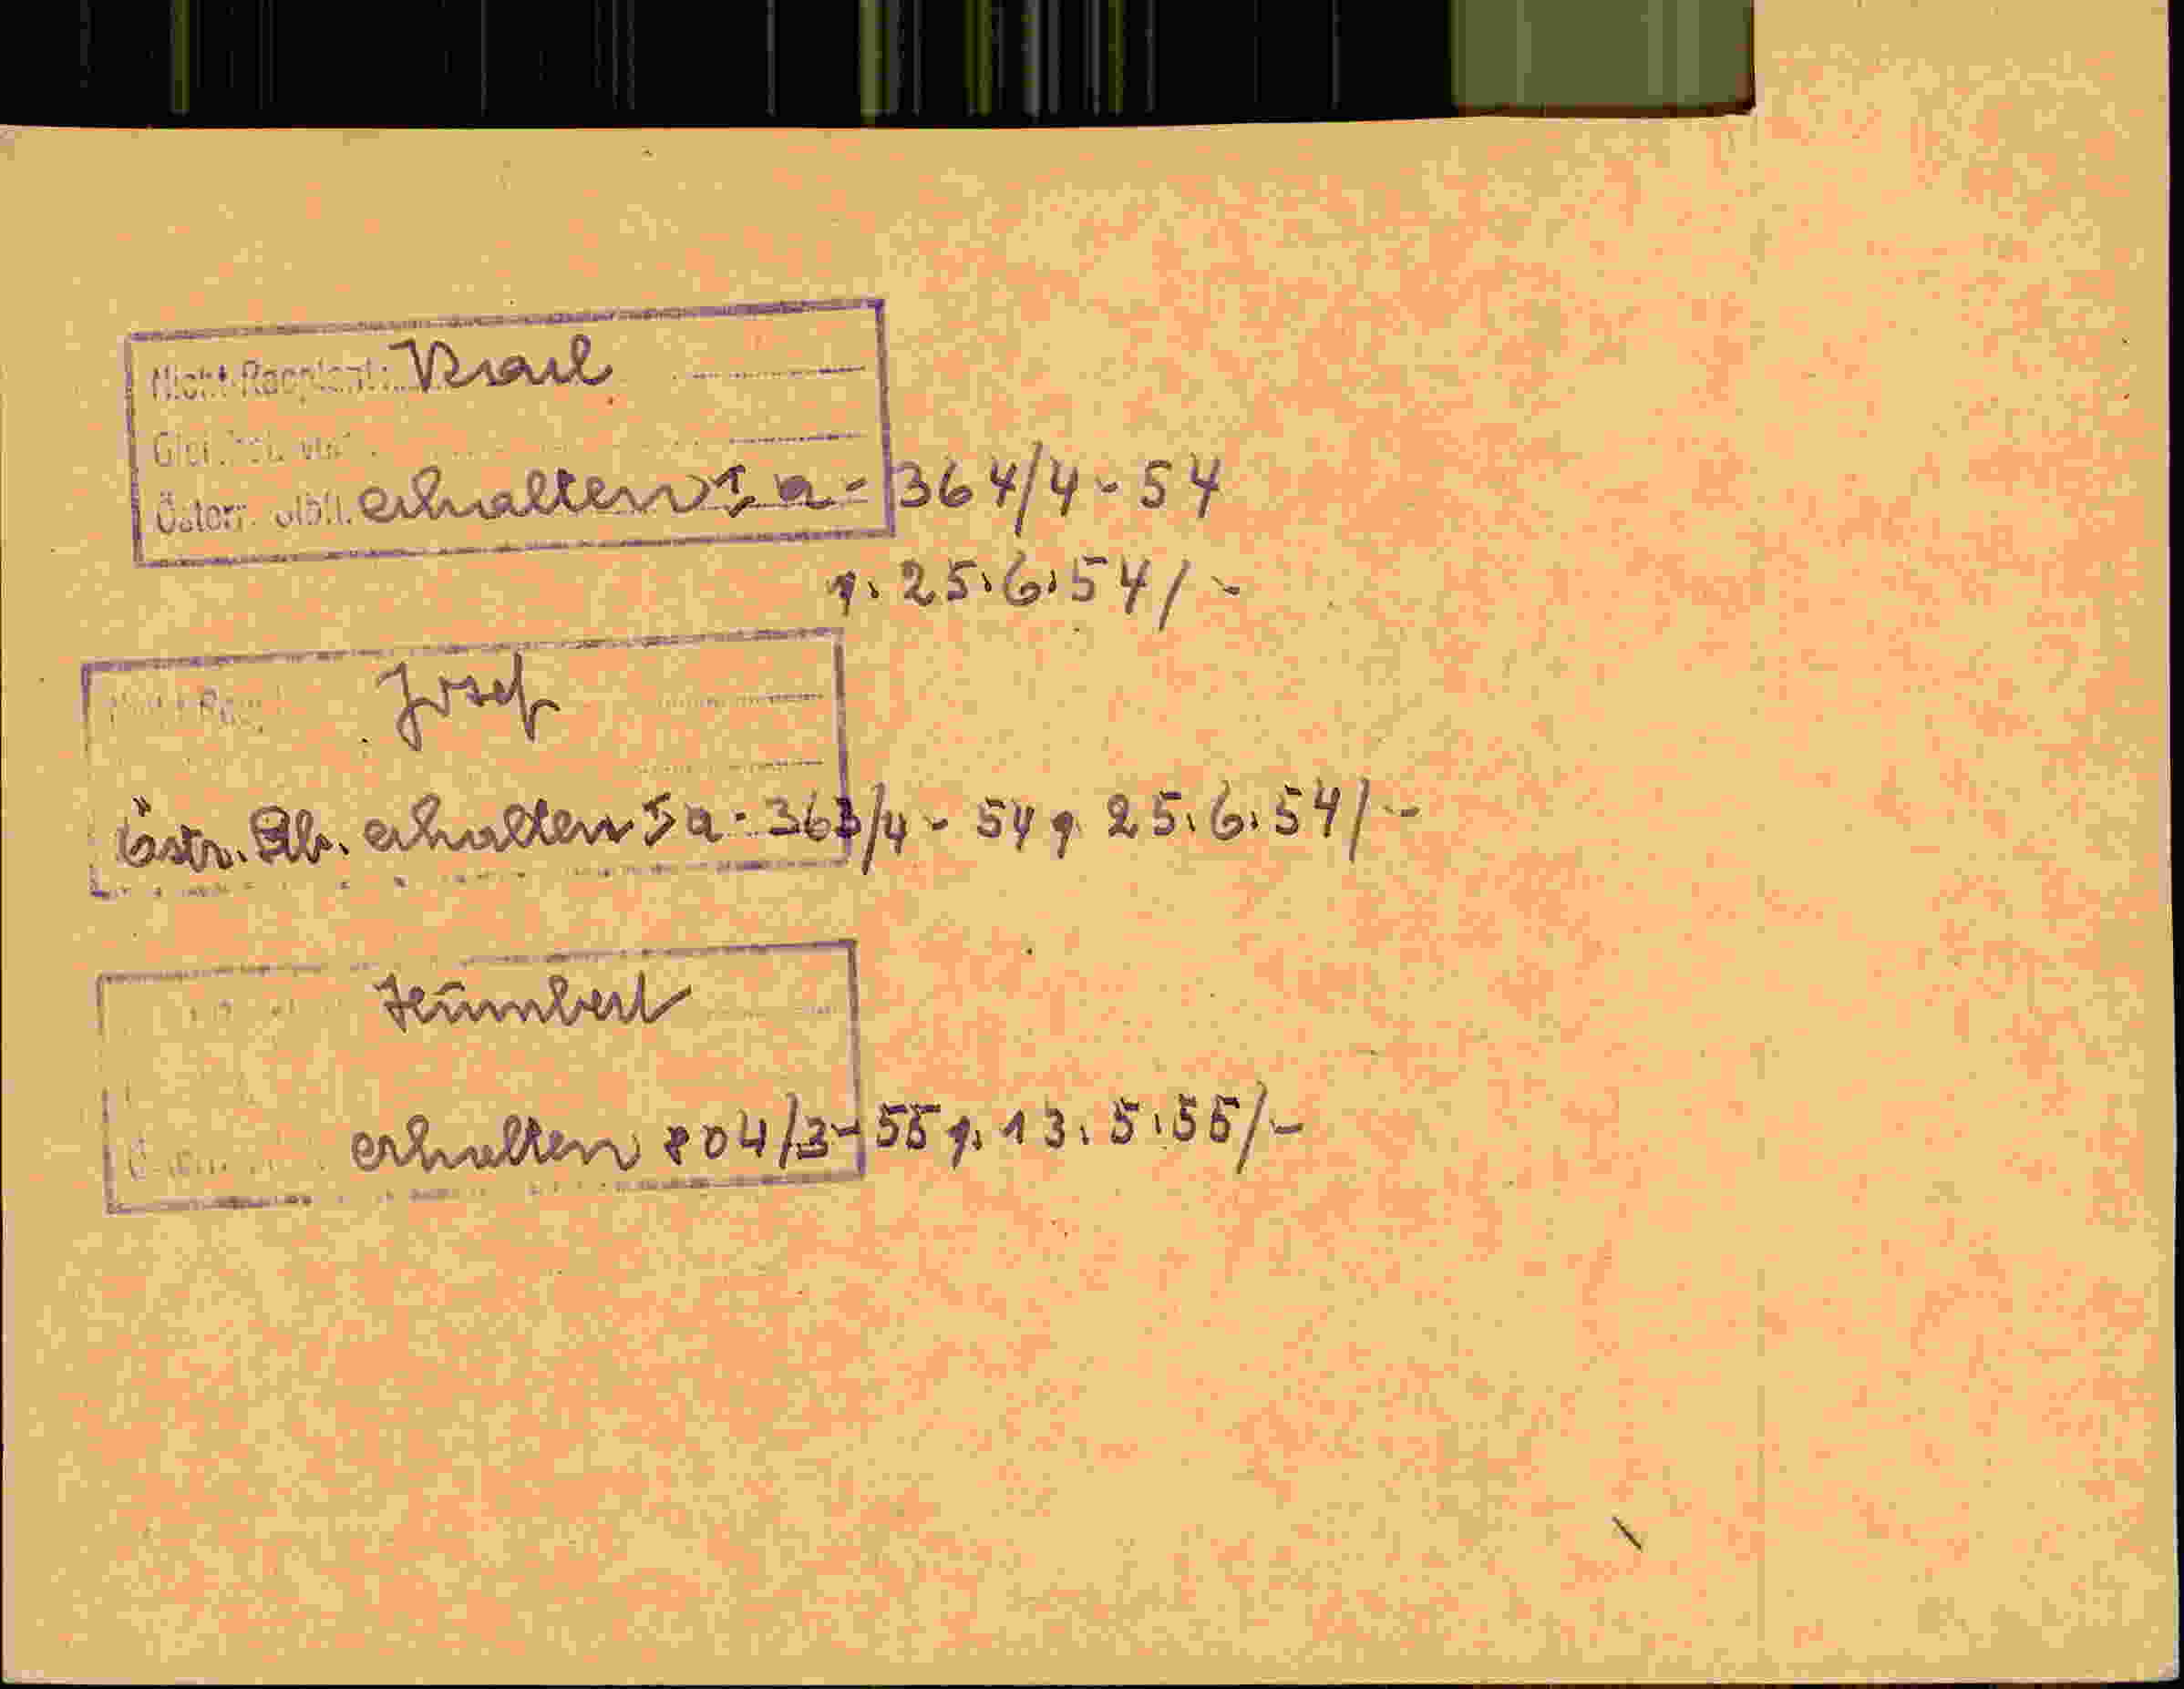 Nicht-Reoptant:
Österr. Stb. erhalten Ia - 364/4 - 54
v. 25.6.54/-
Josef
Östr. Stb. erhalten Ia - 363/4 - 54 v. 25.6.54/-
Humbert
erhalten 804/3 - 55 v. 13.5.55/-